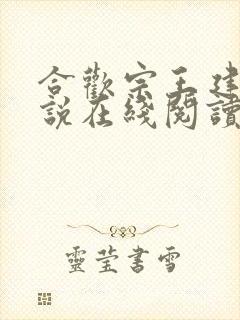 合歡宗王建
說在綫閱讀
靈瑩書雪